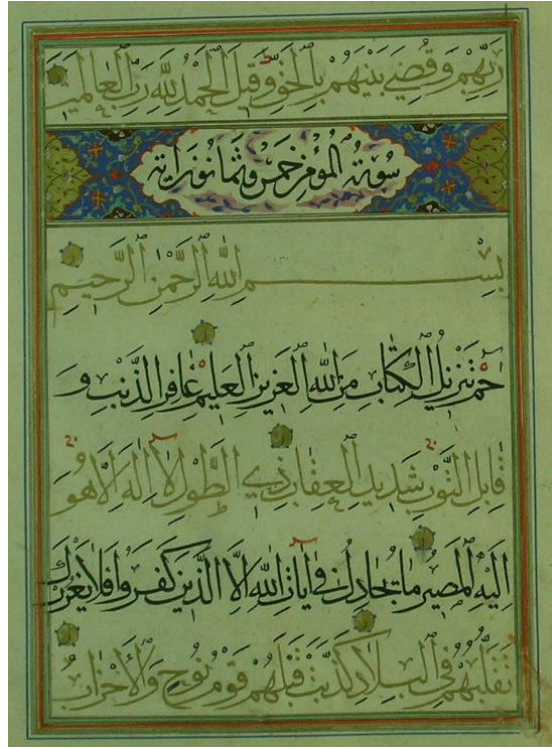 رَبِّهِمْ وَقُضِيَ بَيْنَهُمْ بِالْحَقِّ وَقِيلَ الْحَمْدُ لِلَّهِ رَبِّ الْعَالَمِينَ
سُورَةُ الْمُؤْمِنِ خَمْسٌ وَثَمَانُونَ آيَة
بِسْمِ اللَّهِ الرَّحْمَٰنِ الرَّحِيمِ
حم تَنْزِيلُ الْكِتَابِ مِنَ اللَّهِ الْعَزِيزِ الْعَلِيمِ غَافِرِ الذَّنْبِ وَ
قَابِلِ التَّوْبِ شَدِيدِ الْعِقَابِ ذِي الطَّوْلِ لَا إِلَٰهَ إِلَّا هُوَ
إِلَيْهِ الْمَصِيرُ مَا يُجَادِلُ فِي آيَاتِ اللَّهِ إِلَّا الَّذِينَ كَفَرُوا فَلَا يَغْرُرْكَ
تَقَلُّبُهُمْ فِي الْبِلَادِ كَذَّبَتْ قَبْلَهُمْ قَوْمُ نُوحٍ وَالْأَحْزَابُ